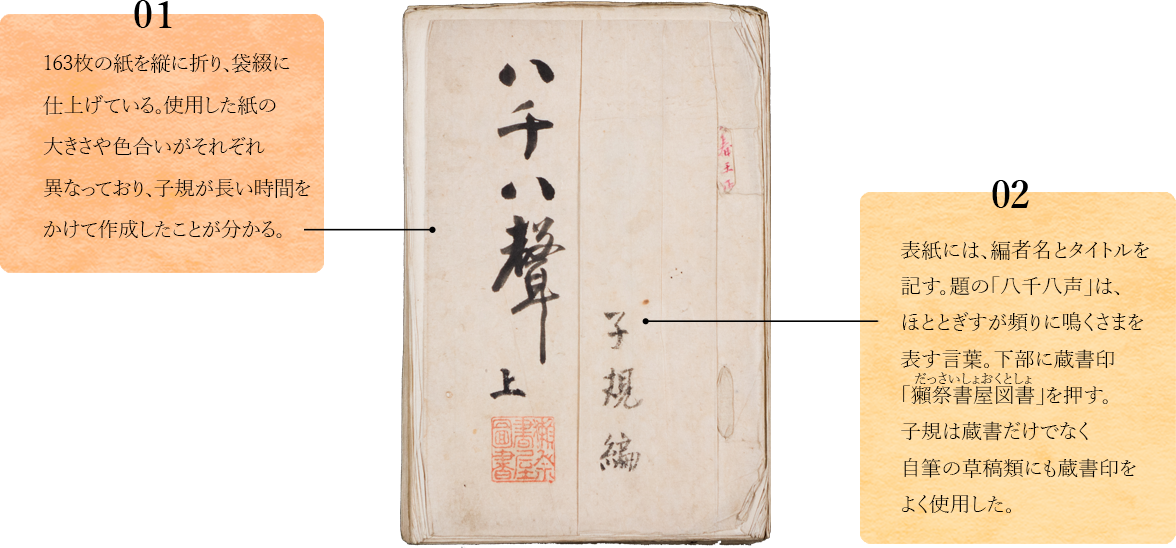 01
163枚の紙を縦に折り、袋綴に
仕上げている。使用した紙の
大きさや色合いがそれぞれ
異なっており、子規が長い時間を
かけて作成したことが分かる。
八千八聲 上
子規編
獺祭
書屋
圖書
02
表紙には、編者名とタイトルを
記す。題の「八千八声」は、
ほととぎすが頻りに鳴くさまを
表す言葉。下部に蔵書印
だっさいしょおくとしょ
「獺祭書屋図書」を押す。
子規は蔵書だけでなく
自筆の草稿類にも蔵書印を
よく使用した。